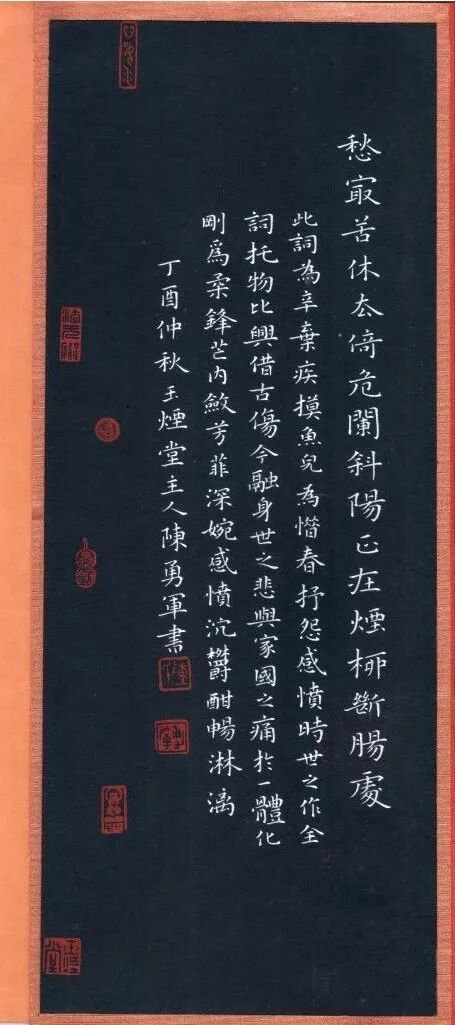 愁㝡苦休去倚危闌斜陽正在煙柳斷腸處
此詞為辛棄疾摸魚兒為惜春抒怨感憤時世之作全
詞托物比興借古傷今融身世之悲與家國之痛於一體化
剛爲柔鋒芒内斂芳菲深婉感憤沉鬱酣暢淋漓
丁酉仲秋玉煙堂主人陳勇軍書